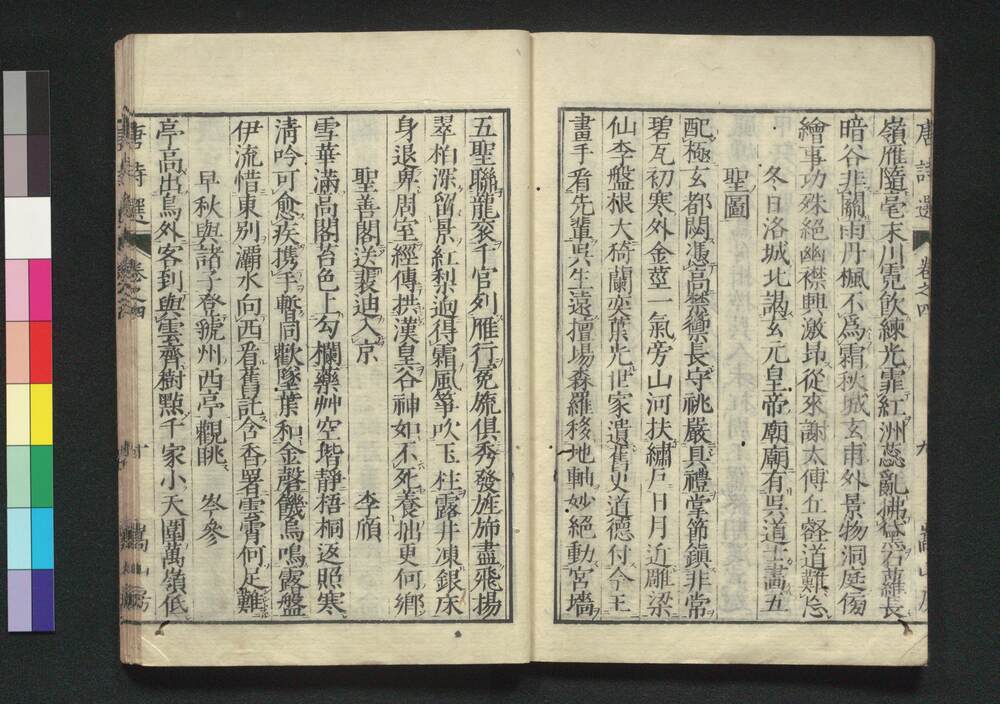 唐詩選 卷之四 九 嵩山房
嶺雁隨毫末川霓飲練光霏紅洲蕊亂拂黛石蘿長
暗谷非關雨丹楓不爲霜秋城玄圃外景物洞庭傍
繪事功殊絕幽襟興激昂從來謝太傅丘壑道難忘
冬日洛城北謁玄元皇帝廟廟有吳道士畫五
聖圖
配極玄都閟憑高禁籞長守祧嚴具禮掌節鎮非常
碧瓦初寒外金莖一氣旁山河扶繡戶日月近雕梁
仙李盤根大猗蘭奕葉光世家遺舊史道德付今王
畫手看先輩吳生遠擅場森羅移地軸妙絕動宮墻
五聖聯龍袞千官列雁行冕旒俱秀發旌旆盡飛揚
翠柏深留景紅梨迥得霜風箏吹玉柱露井凍銀床
身退卑周室經傳拱漢皇谷神如不死養拙更何鄉
聖善閣送裴迪入京 李頎
雪華滿高閣苔色上勾欄藥艸空堦靜梧桐返照寒
清吟可愈疾攜手暫同歡墜葉和金磬饑烏鳴露盤
伊流惜東別灞水向西看舊託含香署雲霄何足難
早秋與諸子登虢州西亭觀眺 岑參
亭高出鳥外客到與雲齊樹點千家小天圍萬嶺低
唐詩選 卷之四